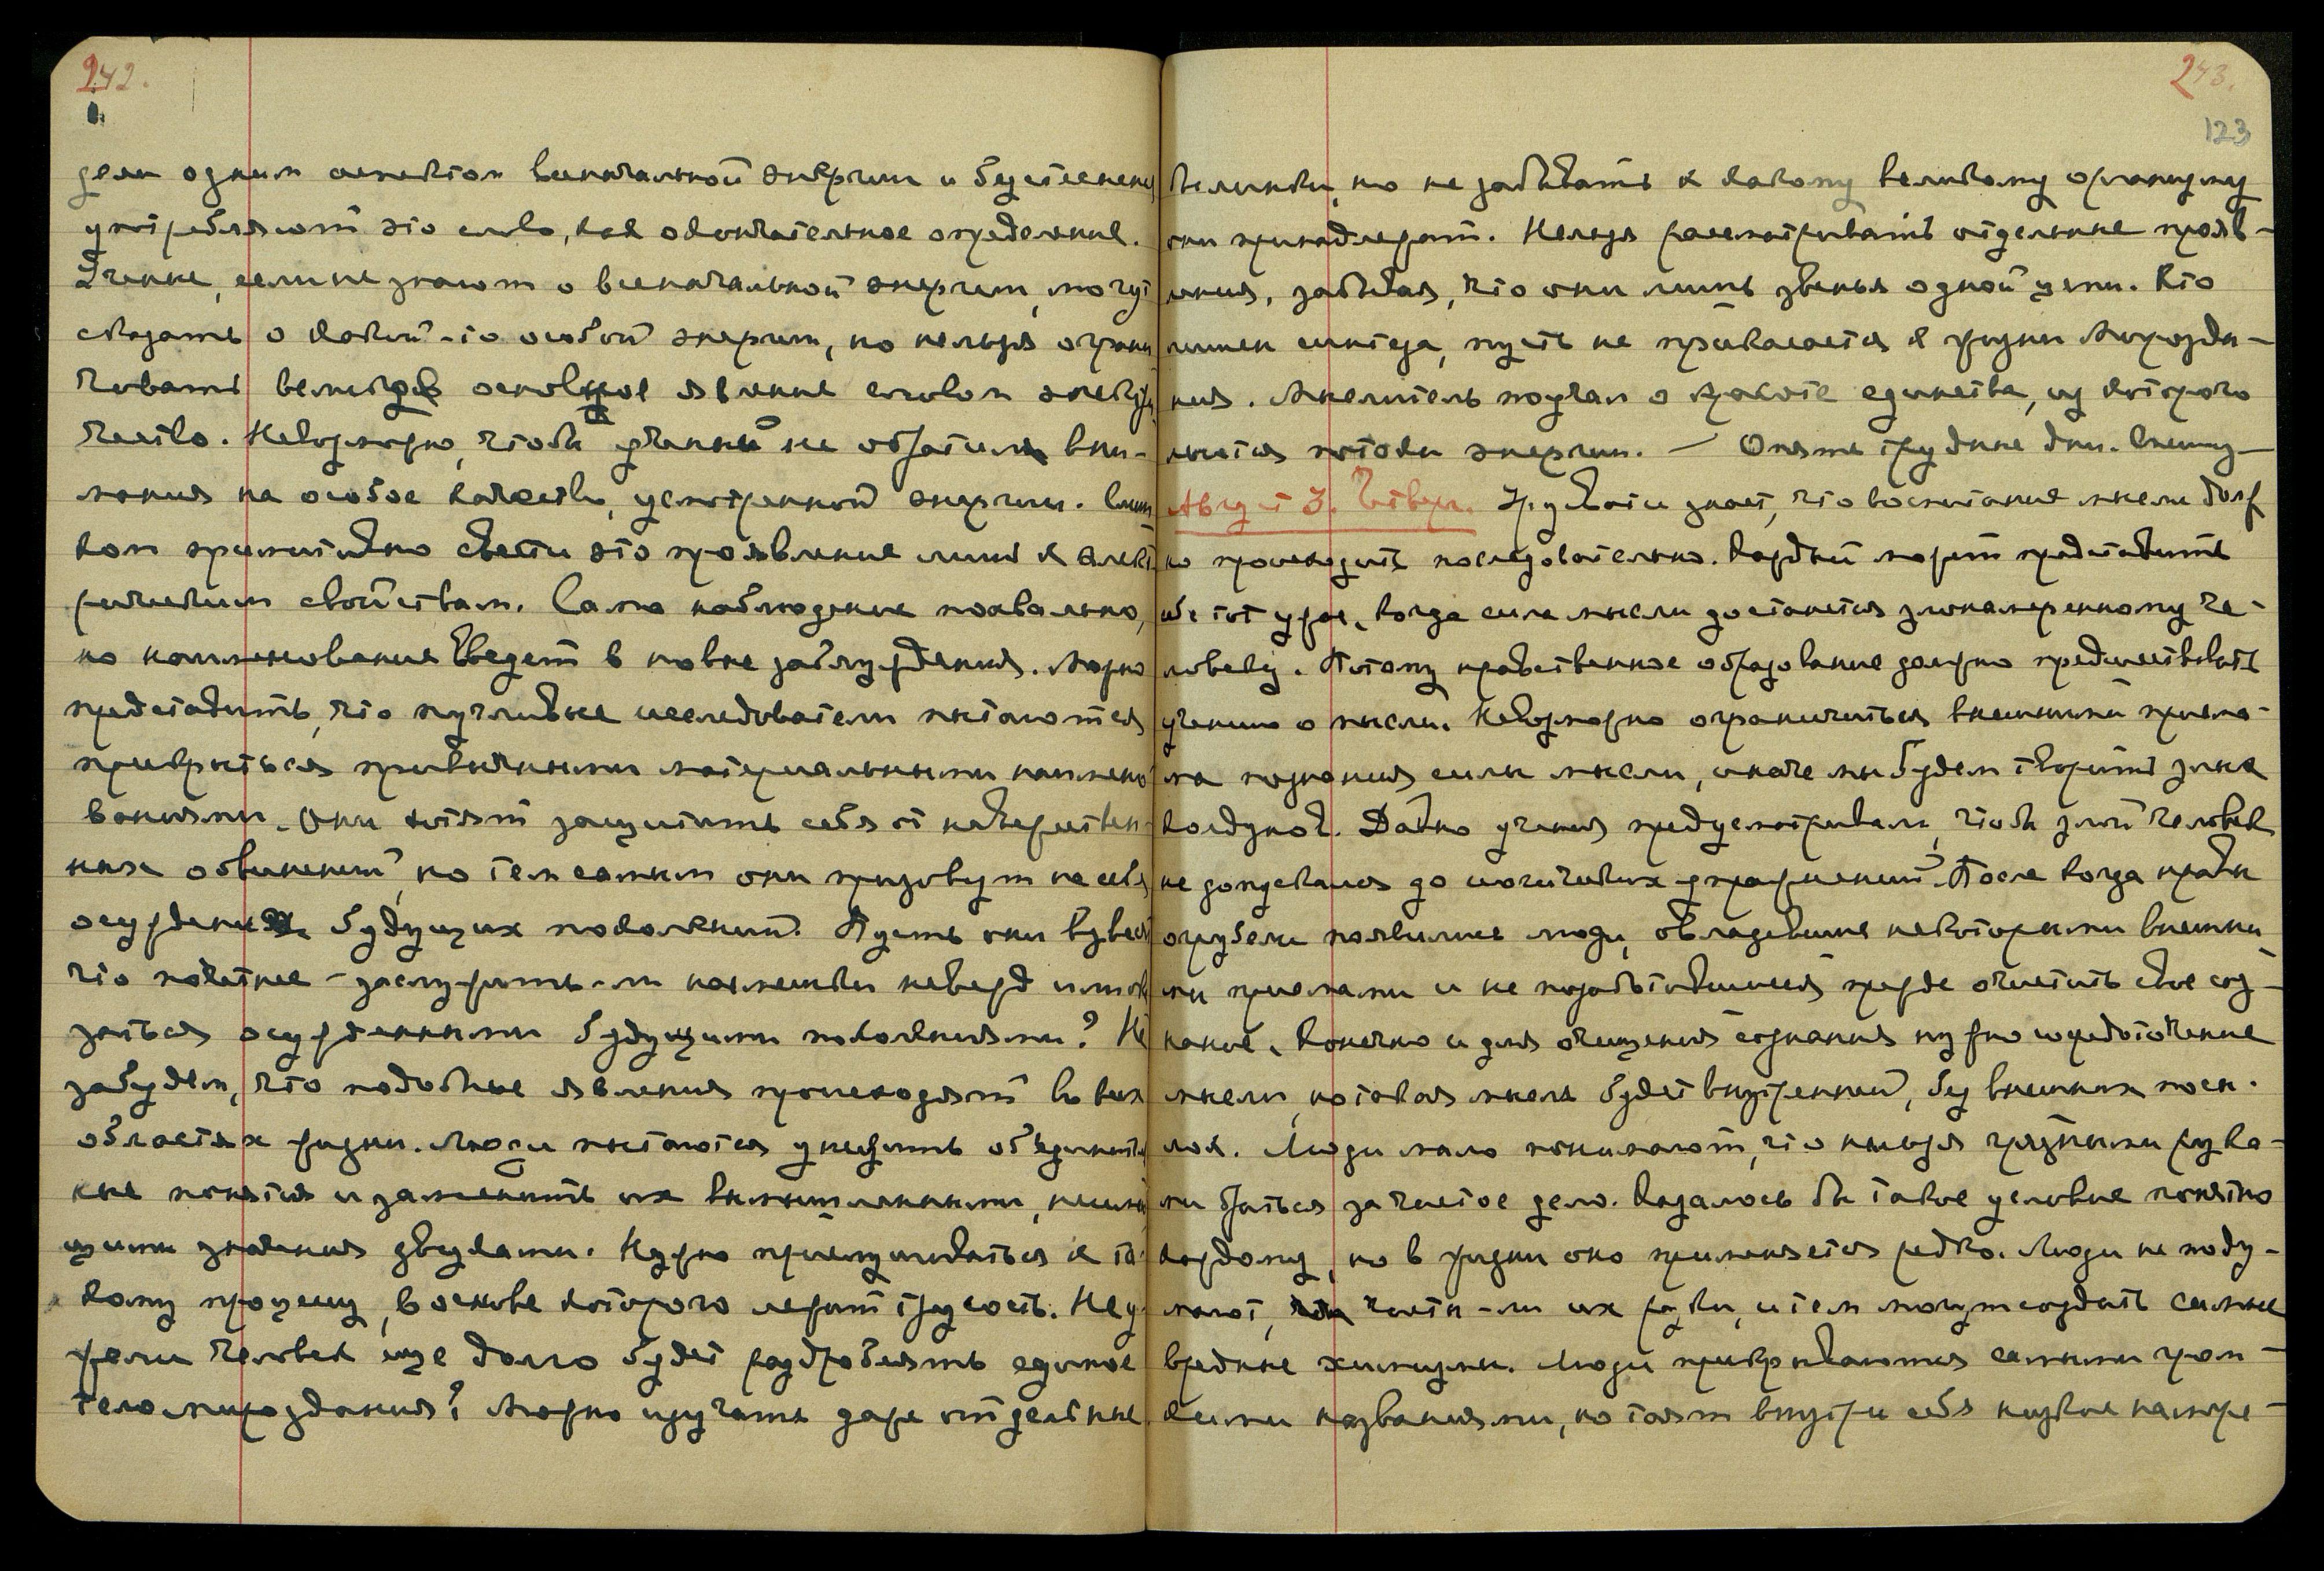 242.
дели одним аспектом всеначальной энергии и бессменно
употребляют это слово, как окончательное определение.
Ученые, если не знают о всеначальной энергии, могут
сказать о какой-то особой энергии, но нельзя ограни
чивать великое основное явление словом электри
чество. Невозможно, чтобы ученый не обратил вни-
мания на особое качество, усмотренной энергии. Слиш
ком примитивно свести это проявление лишь к элект
рическим свойствам. Само наблюдение похвально,
но наименование введет в новые заблуждения. Можно
представить, что пугливые исследователи пытаются
прикрыться привычными материальными наимено
ваниями. Они хотят защитить себя от невежествен-
ных обвинений, но тем самым они призовут на себя
осуждение будущих поколений. Пусть они взвесят
что почетнее - заслужить-ли насмешки невежд или ока
заться осужденными будущими поколениями? Не
забудем, что подобные явления происходят во всех
областях жизни. Люди пытаются унизить объединитель
ные понятия и заменить их вымышленными, неимею
щими значения звуками. Нужно прислушиваться к та-
кому процессу, в основе которого лежит трусость. Неу-
жели человек еще долго будет раздроблять единое
тело мироздания? Можно изучать даже отдельные
243.
123
великие, но не забывать к какому великому организму
они принадлежат. Нельзя рассматривать отдельные прояв-
ления, забывая, что они лишь звенья одной цепи. Кто
лишен синтеза, пусть не прикасается к жизни Мирозда-
ния. Мыслитель поучал о красоте единства, из которого
льются потоки энергии. — Опять трудные дни. Спешу—
Август 3. Четверг. Урусвати знает, что воспитание мысли долж
но происходить последовательно. Каждый может представить
себе тот ужас, когда сила мысли достанется злонамеренному че-
ловеку. Потому нравственное образование должно предшествовать
учению о мысли. Невозможно ограничиться внешними приема-
ми познания силы мысли, иначе мы будем творить злых
колдунов. Давно учения предусматривали, чтобы злой человек
не допускался до магических упражнений. После когда нравы
огрубели появились люди, овладевшие некоторыми внешни
ми приемами и не позаботившиеся прежде очистить свое соз-
нание. Конечно и для очищения сознания нужно сосредоточение
мысли, но такая мысль будет внутренней, без внешних посы-
лок. Люди мало понимают, что нельзя грязными рука-
ми браться за чистое дело. Казалось бы такое условие понятно
каждому, но в жизни оно применяется редко. Люди не поду-
мают, чисты-ли их руки, и тем могут создать самые
вредные химизмы. Люди прикрываются самыми гром-
кими названиями, но таят внутри себя низкие намере-